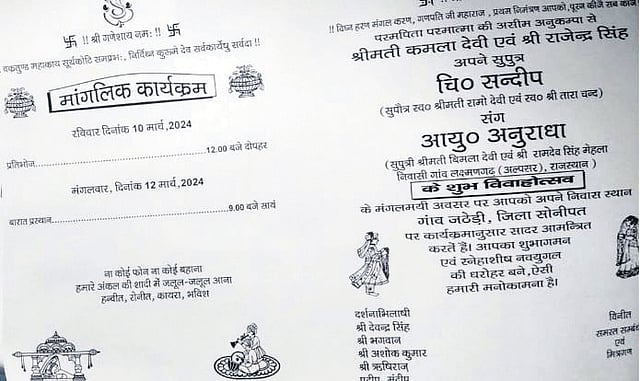 卐 卐
!! श्री गणेशाय नमः !!
वक्रतुण्ड महाकाय सूर्यकोटि समप्रभः, निर्विघ्न कुरूमे देव सर्वकार्येषु सर्वदा !!
मांगलिक कार्यक्रम
रविवार दिनांक 10 मार्च,2024
प्रतिभोज.......12.00 बजे दोपहर
मंगलवार, दिनांक 12 मार्च,2024
बारात प्रस्थान.......9.00 बजे सायं
ना कोई फोन ना कोई बहाना
हमारे अंकल की शादी में जलूल-जलूल आना
हन्वीत, रोनीत, कायरा, भविश
!! विघ्न हरण मंगल करण, गणपति जी महाराज , प्रथम निमंत्रण आपको,पूरन कीजे सब काज
परमपिता परमात्मा की असीम अनुकम्पा से
श्रीमती कमला देवी एवं श्री राजेन्द्र सिंह
अपने सुपुत्र
चि० सन्दीप
(सुपौत्र स्व० श्रीमती रामो देवी एवं स्व० श्री तारा चन्द)
संग
आयु० अनुराधा
(सुपुत्री श्रीमती विमला देवी एवं श्री रामदेव सिंह मेहला
निवासी गांव लक्ष्मणगढ़ (अल्पसर), राजस्थान )
के शुभ विवाहोत्सव
के मंगलमयी अवसर पर आपको अपने निवास स्थान
गांव जठेड़ी, जिला सोनीपत
पर कार्यक्रमानुसार सादर आमन्त्रित
करते हैं। आपका शुभागमन
एवं स्नेहाशीष नवयुगल
की धरोहर बने,ऐसी
हमारी मनोकामना है।
दर्शनाभिलाषी
श्री देवन्द्र सिंह
श्री भगवान
श्री अशोक कुमार
श्री ऋषिराज
प्रदीप, संदीप
विनीत
समस्त सम्बं
एवं
मित्रगण